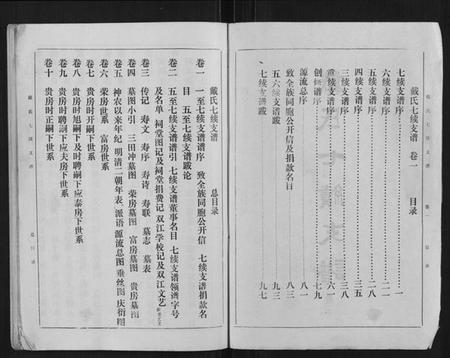 戴氏七续支谱 卷一 目录
七续支谱序……一
六续支谱序
五续支谱序……二八
四续支谱序……三五
三续支谱序……三八
重续支谱序……六一
创修谱序……七九
源流总序……八一
致全族同胞公开信及捐款名目……八三
五六续支谱跋……九三
七续支谱跋……九七
戴氏七续支谱 总目录
卷一 一至七续支谱谱序 致全族同胞公开信 七续支谱捐款名
目 五至七续支谱跋论
卷二 五至七续支谱谱引 七续支谱董事名目 七续支谱领谱字号
及名单 祠堂图记及祠堂捐费记 双江学校记及双江文艺
卷三 传记 寿文 寿序 寿诗 寿联 墓志 墓表
卷四 墓图小引 三田冲墓图 荣房墓图 富房墓图 贵房墓图
卷五 神农以来年纪 明清二朝年表 派语 源流总图 垂丝图 庆衍图
卷六 荣房世系 富房世系
卷七 贵房时开嗣下世系
卷八 贵房时旭嗣下及时聘嗣下应泰房下世系
卷九 贵房时聘嗣下应夫房下世系
卷十 贵房时正嗣下世系